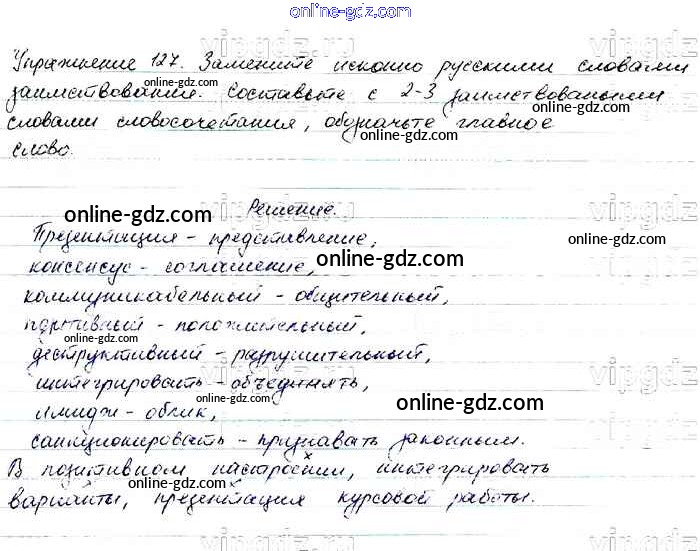 Упражнение 127. Замените исконно русскими словами
заимствования. Составьте с 2-3 заимствованными
словами словосочетания, обозначьте главное
слово.
Решение.
Презентация - представление,
консенсус - соглашение,
коммуникабельный - общительный,
позитивный - положительный,
деструктивный - разрушительный,
интегрировать - объединять,
имидж - облик,
санкционировать - признавать законным.
В позитивном настроении, интегрировать
варианты, презентация курсовой работы.
online-gdz.com
online-gdz.com
online-gdz.com
online-gdz.com
online-gdz.com
online-gdz.com
online-gdz.com
online-gdz.com
online-gdz.com
online-gdz.com
online-gdz.com
vipgdz.ru
vipgdz.ru